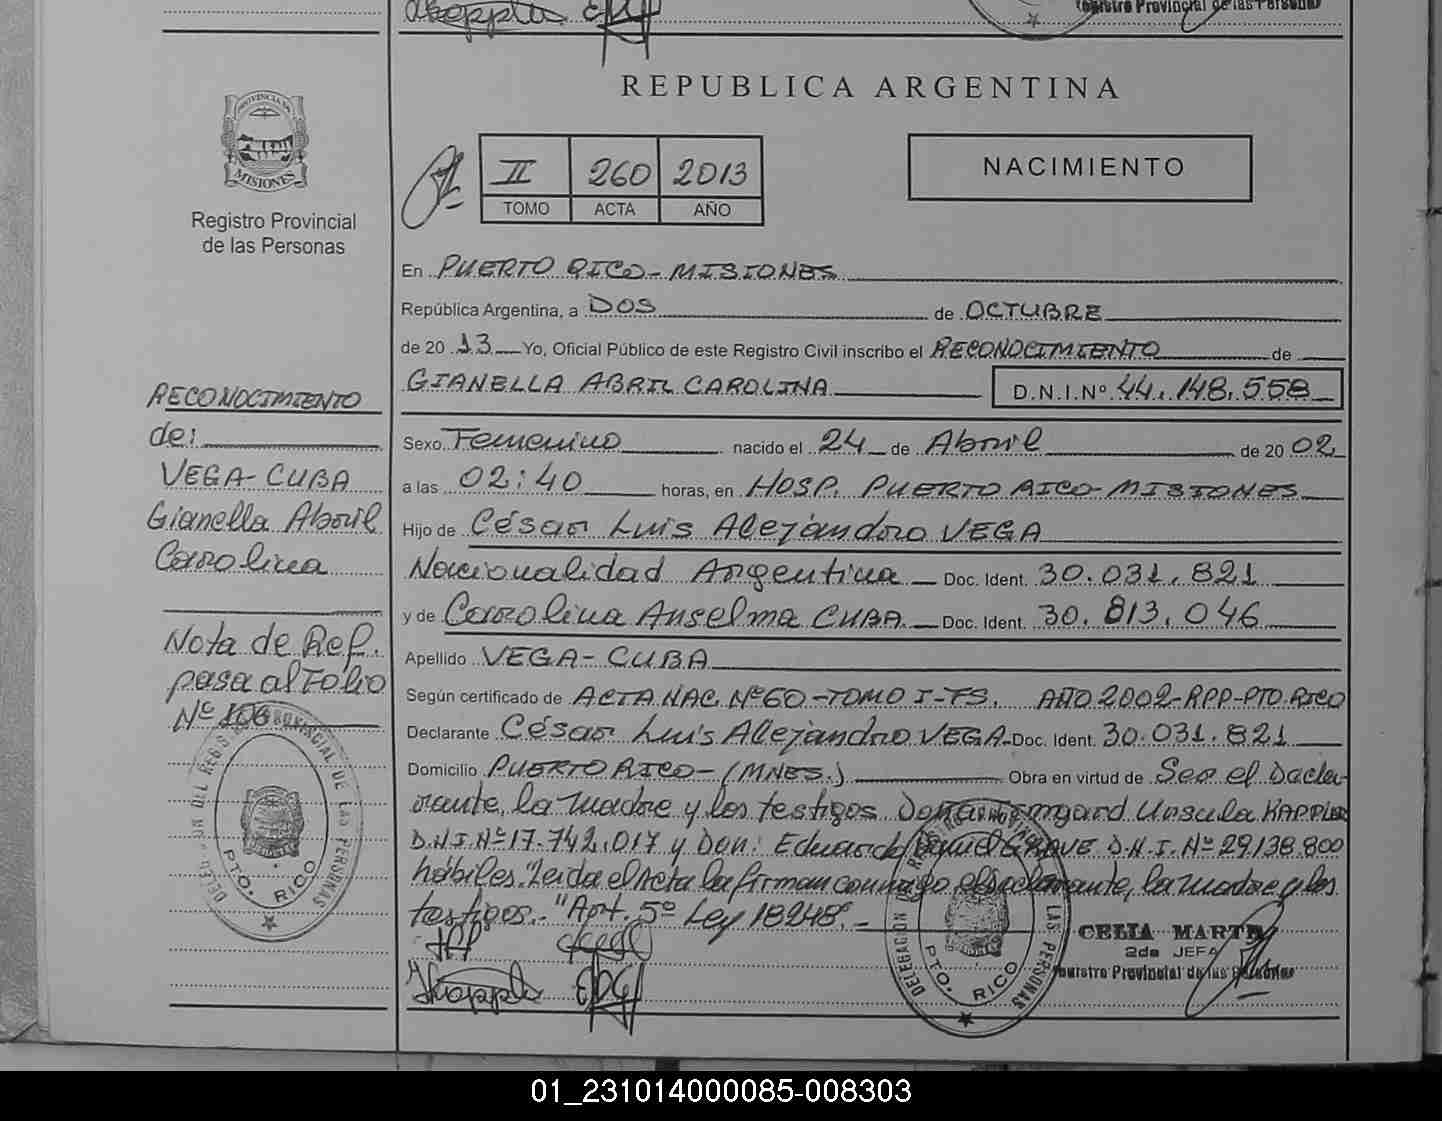 Registro Provincial de las Personas
REPUBLICA ARGENTINA
PROVINCIA DE
MISIONES
Registro Provincial
de las Personas
II 260 2013
TOMO ACTA AÑO
NACIMIENTO
En PUERTO RICO - MISIONES
República Argentina, a DOS de OCTUBRE
de 20 13 Yo, Oficial Público de este Registro Civil inscribo el RECONOCIMIENTO de
GIANELLA ABRIL CAROLINA D.N.I.Nº 44.148.558
RECONOCIMIENTO
de:
VEGA-CUBA
Gianella Abril
Carolina
Nota de Ref.
pasa al Folio
Nº 106
Sexo Femenino nacido el 24 de Abril de 20 02
a las 02:40 horas, en HOSP. PUERTO RICO-MISIONES
Hijo de César Luis Alejandro VEGA
Nacionalidad Argentina Doc. Ident. 30.031.821
y de Carolina Anselma CUBA Doc. Ident. 30.813.046
Apellido VEGA-CUBA
Según certificado de ACTA NAC. Nº 60-TOMO I-FS. AÑO 2002-RPP-PTO.RICO
Declarante César Luis Alejandro VEGA Doc. Ident. 30.031.821
Domicilio PUERTO RICO-(MNES.) Obra en virtud de Ser el Decla-
rante, la madre y los testigos Doña: Irmgard Ursula KAPPLER
D.N.I.Nº 17.742.017 y Don: Eduardo Daniel GRAVE D.N.I. Nº 29.138.800
hábiles. Leida el Acta la firman conmigo, el declarante, la madre y los
testigos.- "Art. 5º Ley 18248".-
DELEGACION DEL REGISTRO PROVINCIAL DE LAS PERSONAS
PTO. RICO
DELEGACION DEL REGISTRO PROVINCIAL DE LAS PERSONAS
PTO. RICO
CELIA MARTA
2da JEFA
Registro Provincial de las Personas
01_231014000085-008303